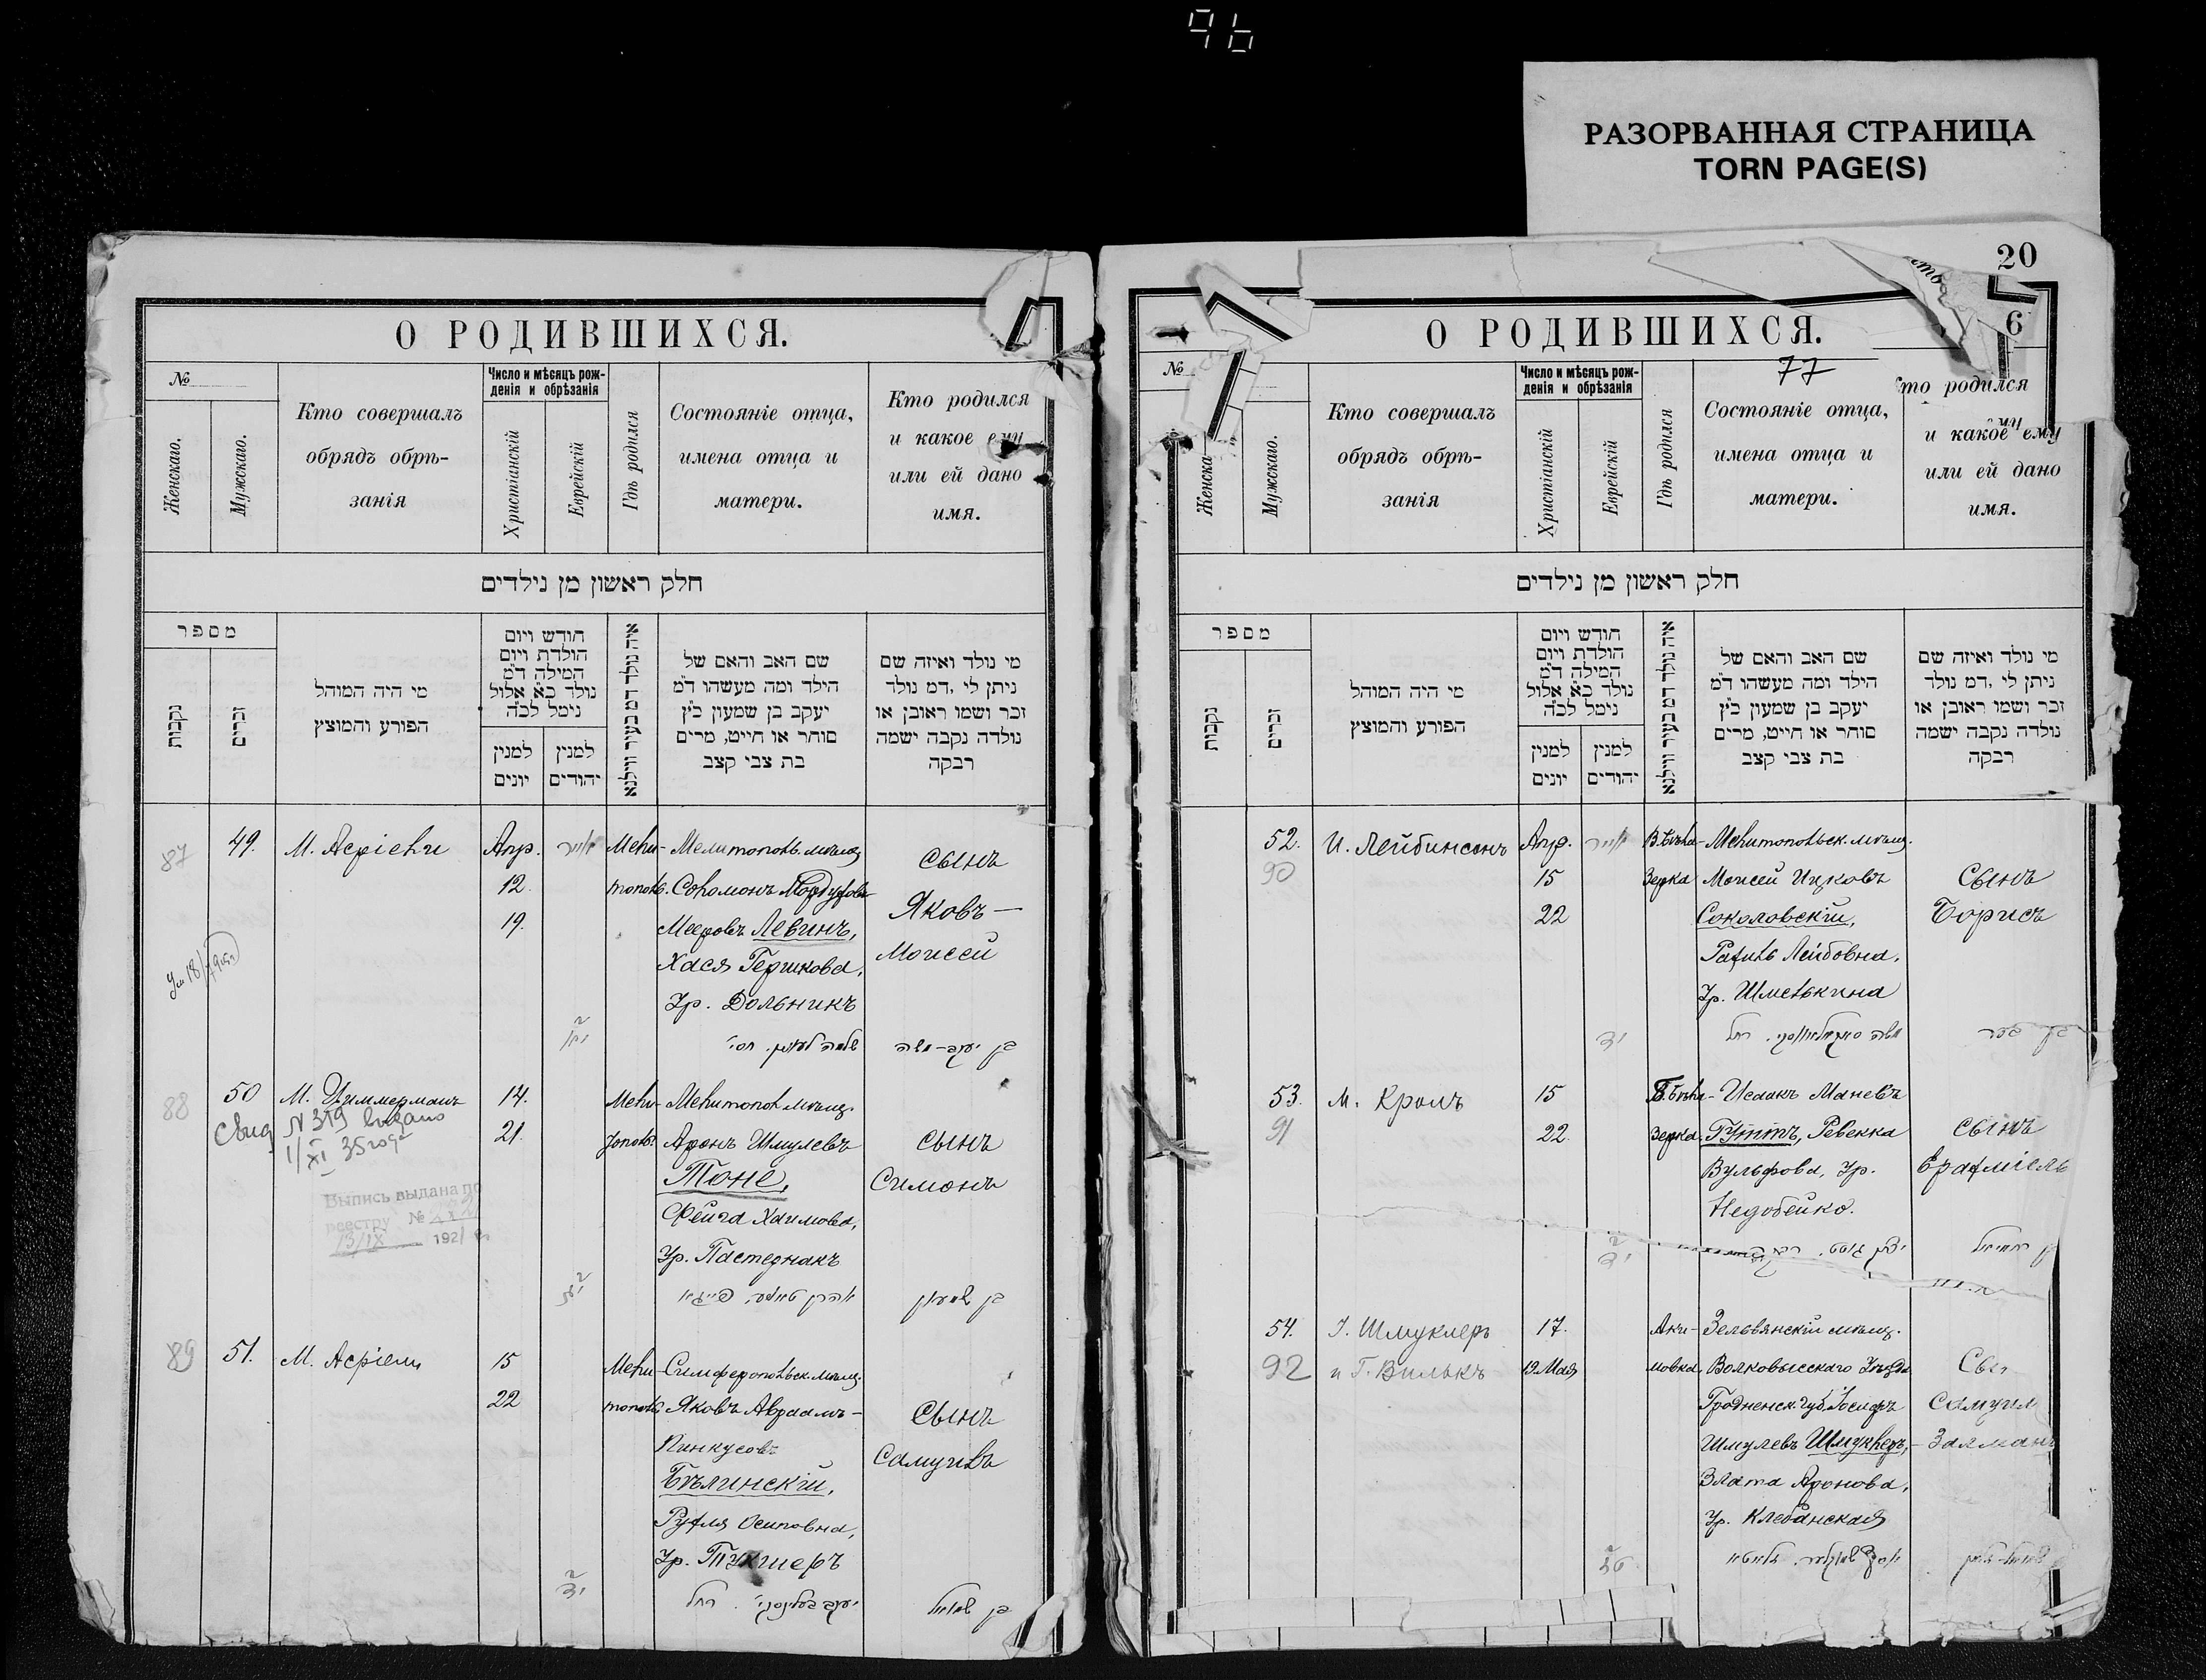 96
РАЗОРВАННАЯ СТРАНИЦА
TORN PAGE(S)
О РОДИВШИХСЯ.
№
Женскаго.
Мужскаго.
Кто совершалъ
обрядъ обрѣ-
занія
Число и мѣсяцъ рож-
денія и обрѣзанія
Христіанскій
Еврейскій
Гдѣ родился
Состояніе отца,
имена отца и
матери.
Кто родился
и какое ему
или ей дано
имя.
חלק ראשון מן נילדים
מספר
נקבות
זכרים
מי היה המוהל
הפורע והמוצץ
חודש ויום
הולדת ויום
המילה ד״מ
נולד כ״א אלול
נימל לכ״ה
למנין
יונים
למנין
יהודים
איה נולד דמ בעיר ווילנא
שם האב והאם של
הילד ומה מעשהו ד״מ
יעקב בן שמעון כ״ץ
סוחר או חייט, מרים
בת צבי קצב
מי נולד ואיזה שם
ניתן לי, דמ נולד
זכר ושמו ראובן או
נולדה נקבה ישמה
רבקה
87
49.
М. Асріели
Апр.
12.
19.
אייר
Мели-
тополь.
Мелитополь. мѣщ.
Соломонъ
Мееровъ Левинъ,
Хася Гершкова,
Ур. Дольникъ
сынъ
Яковъ—
Моисей
בן יעקב-משה
88
50
М. Циммерманъ
14.
21.
Мели-
тополь
Мелитопол мѣщ.
Аронъ Шмулевъ
Тоне,
Фейга Хаимова,
Ур. Пастернакъ
сынъ
Симонъ
בן שמעון
Свид № 319
1/XI 35 года
Выпись выдана по
реестру №
13/IX 1921 г.
89
51.
М. Асріели
15
22
Мели-
тополь
Симферопольск. мѣщ.
Яковъ Авраамъ-
Пинкусовъ
Бѣлинскій,
Руфля Осиповна,
Ур. Тукшеръ
сынъ
Самуилъ
בן שמואל
20
6
77
О РОДИВШИХСЯ.
№
Женска
Мужскаго.
Кто совершалъ
обрядъ обрѣ-
занія
Число и мѣсяцъ рож-
денія и обрѣзанія
Христіанскій
Еврейскій
Гдѣ родился
Состояніе отца,
имена отца и
матери.
то родился
и какое ему
или ей дано
имя.
חלק ראשון מן נילדים
מספר
נקבות
זכרים
מי היה המוהל
הפורע והמוצץ
חודש ויום
הולדת ויום
המילה ד״מ
נולד כ״א אלול
נימל לכ״ה
למנין
יונים
למנין
יהודים
איה נולד דמ בעיר ווילנא
שם האב והאם של
הילד ומה מעשהו ד״מ
יעקב בן שמעון כ״ץ
סוחר או חייט, מרים
בת צבי קצב
מי נולד ואיזה שם
ניתן לי, דמ נולד
זכר ושמו ראובן או
נולדה נקבה ישמה
רבקה
52.
90
И. Лейбинсонъ
Апр.
15
22
אייר
В. Бѣло-
зерка
Мелитопольск. мѣщ.
Моисей Ицковъ
Соколовскій,
Рахиль Лейбовна,
Ур. Шмелькина
Сынъ
Борисъ
53.
91
М. Кролъ
15
22.
В. Бѣло-
зерка
Исаакъ Маневъ
Гуттъ, Ревекка
Вульфова, Ур.
Недобейко.
сынъ
Ерахміель
54.
92
I. Шмуклеръ
и Г. Вилькъ
17.
19 Мая
Аки-
мовка
Зельвянскій мѣщ.
Волковысскаго Уѣзда
Гродненск. Губ. Іосифъ
Шмулевъ Шмуклеръ,
Злата Аронова,
Ур. Клебанская
Сын
Самуил
Залманъ